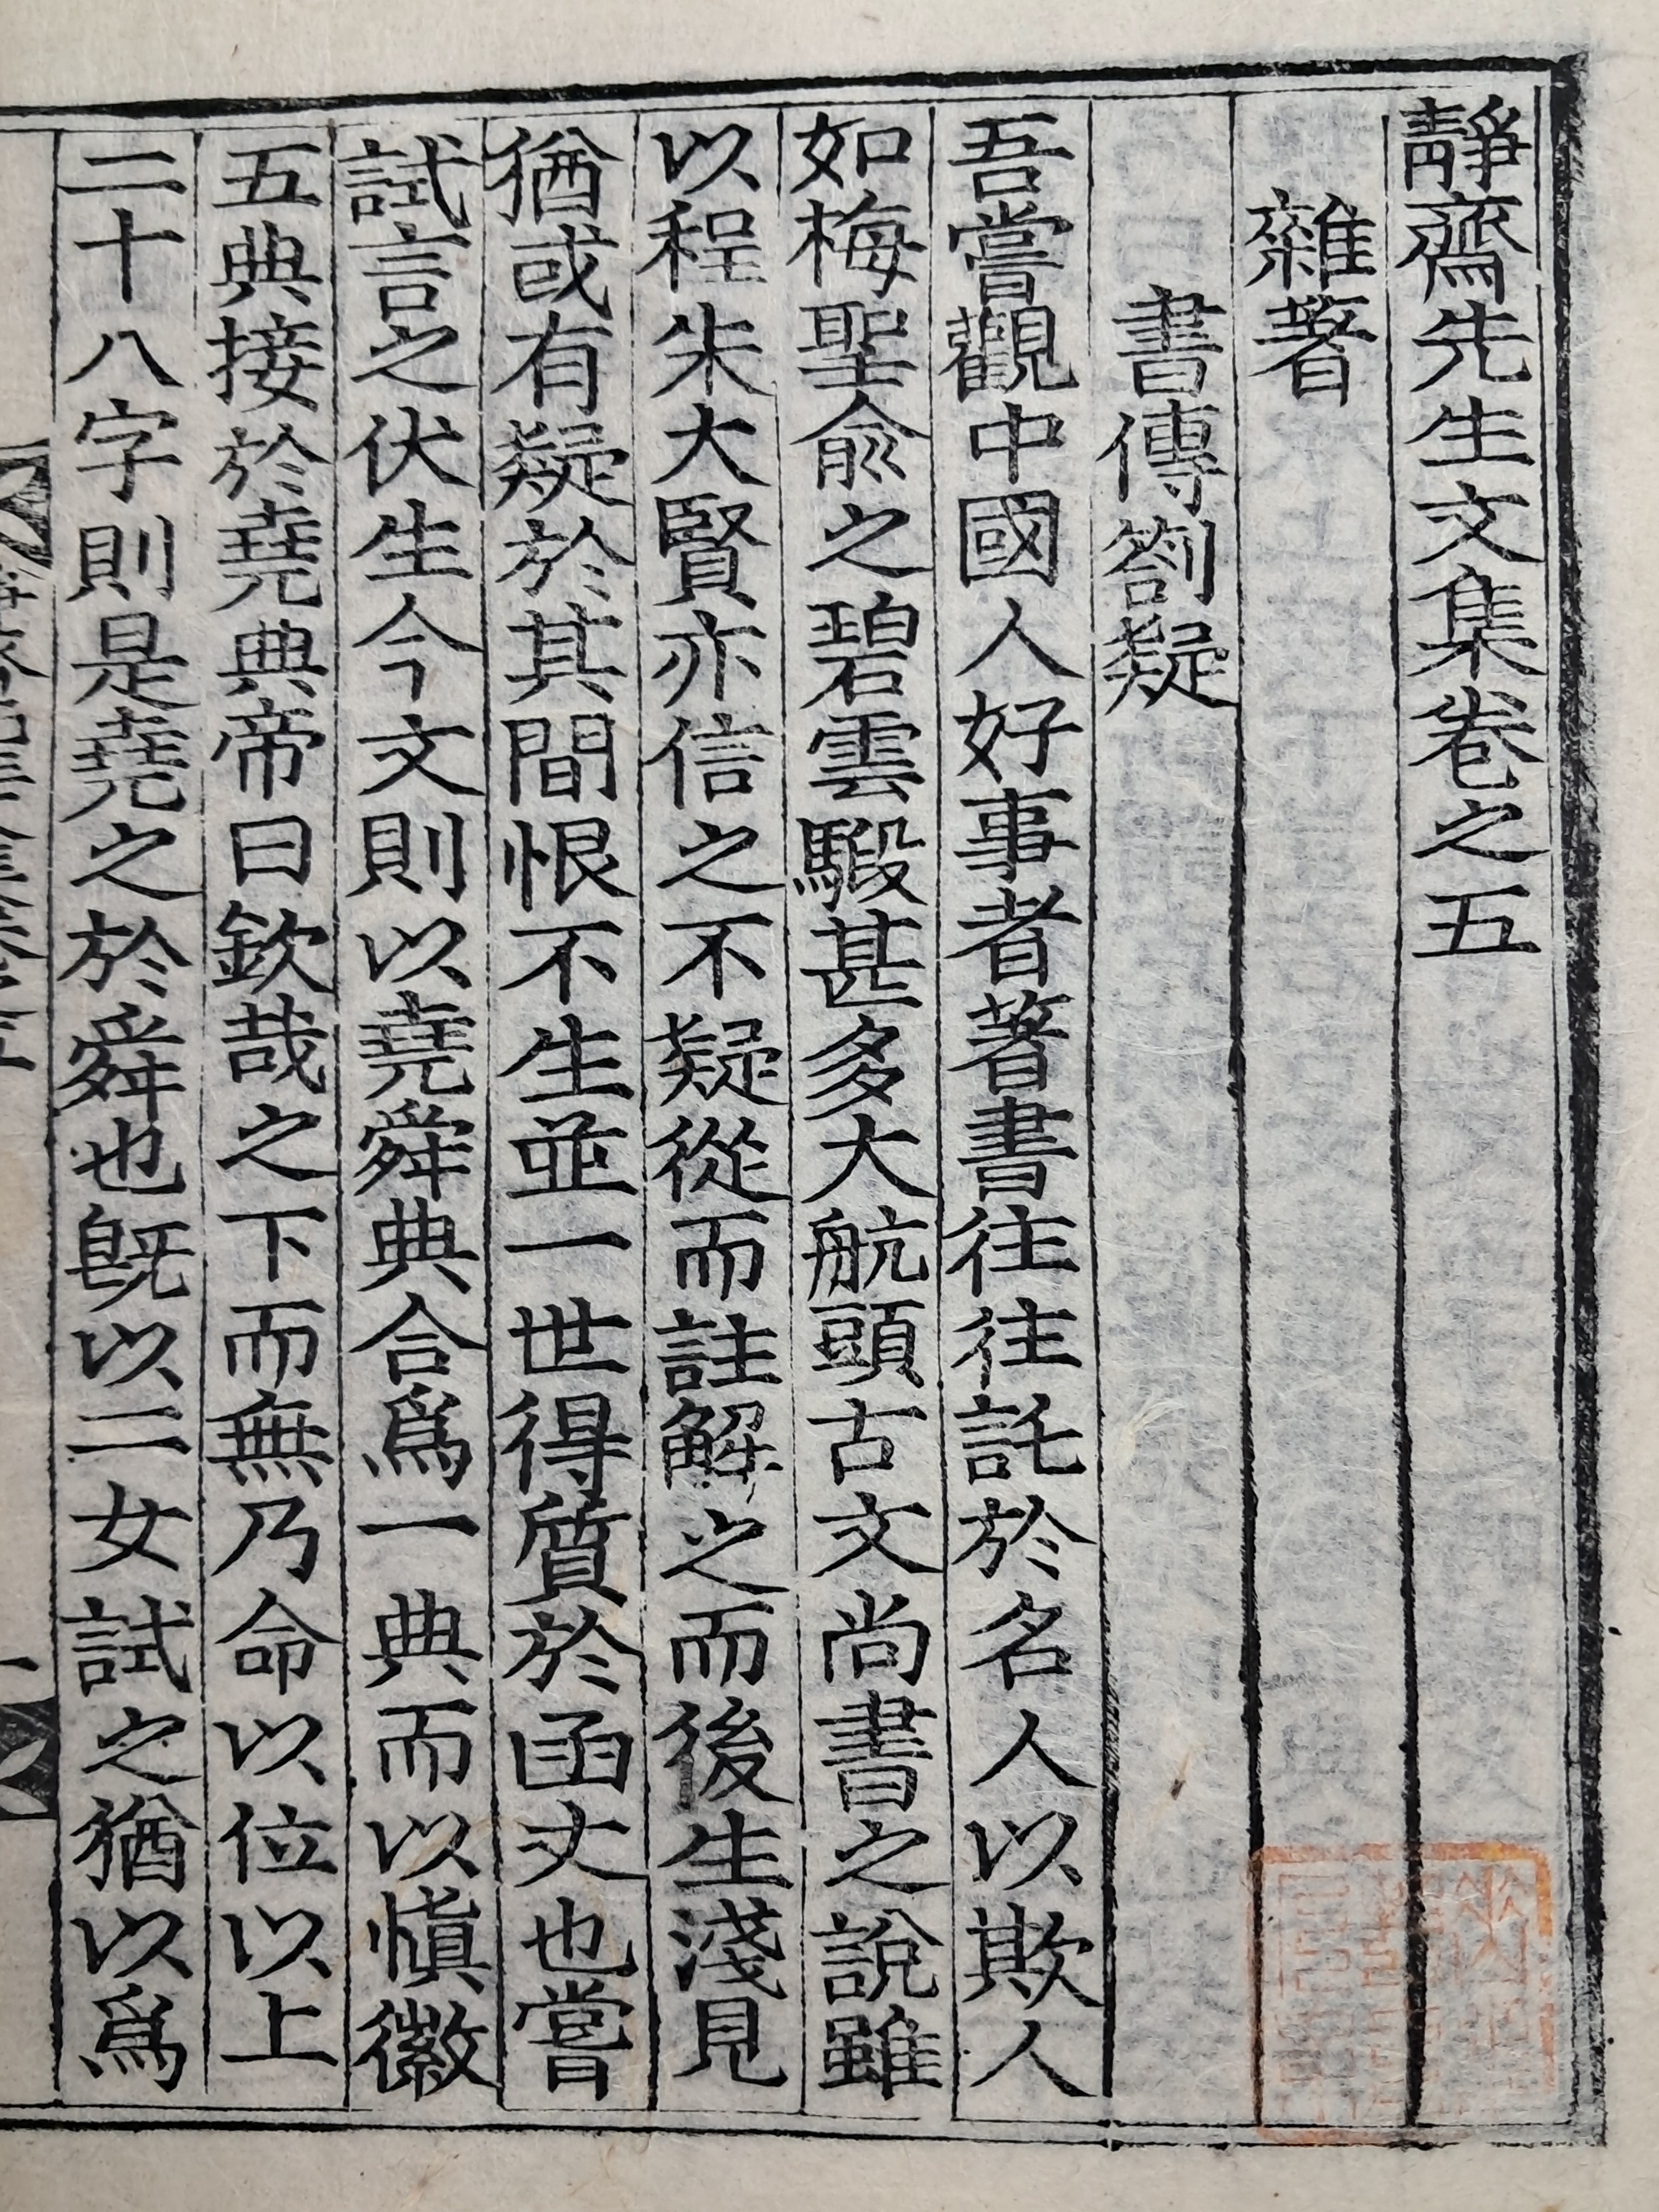 靜齋先生文集卷之五
雜著
書傳劄疑
吾嘗觀中國人好事者著書往往託於名人以欺人
如梅聖兪之碧雲騢甚多大航頭古文尚書之說雖
以程朱大賢亦信之不疑從而註解之而後生淺見
猶或有疑於其間恨不生並一世得質於函丈也嘗
試言之伏生今文則以堯舜典合爲一典而以愼徽
五典接於堯典帝曰欽哉之下而無乃命以位以上
二十八字則是堯之於舜也旣以二女試之猶以爲